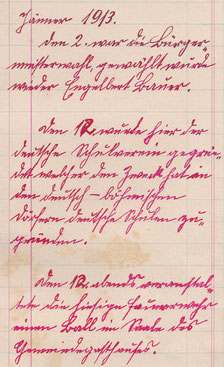 Jänner 1913.
Den 2. war die Bürger-
meisterwahl, gewählt wurde
wieder Engelbert Bauer.
Den 12. wurde hier der
deutsche Schulverein gegrün-
det welcher den Zweck hat an
den deutsch-böhmischen
Dörfern deutsche Schulen zu
gründen.
Den 12. abends veranstal-
tete die hiesige Feuerwehr
einen Ball im Saale des
Gemeindegasthauses.